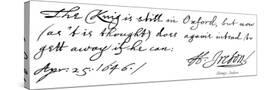 The King is still in Oxford, but now
(as 't is thought) does again intend to
gett away if he can:
Apr: 25. 1646.
H: Ireton
Henry Ireton